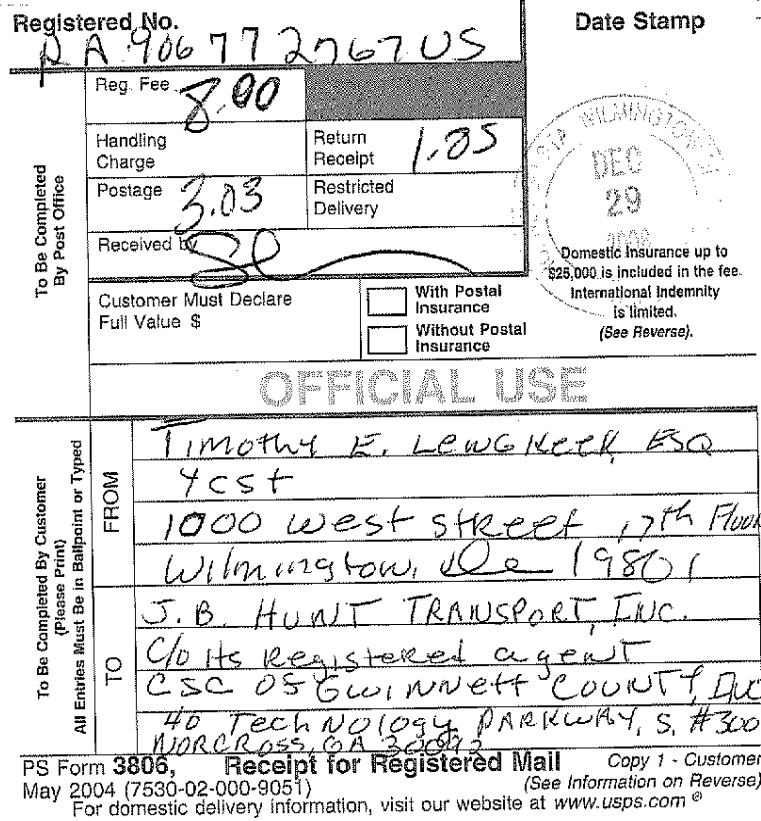 Registered No.
RA 906 772 767 US
Date Stamp
To Be Completed
By Post Office
Reg. Fee 8.90
Handling
Charge
Return
Receipt 1.85
Postage 3.03
Restricted
Delivery
Received by
WILMINGTON
DEC
29
2008
Domestic Insurance up to
$25,000 is included in the fee.
International Indemnity
is limited.
(See Reverse).
Customer Must Declare
Full Value $
With Postal
Insurance
Without Postal
Insurance
OFFICIAL USE
To Be Completed By Customer
(Please Print)
All Entries Must Be in Ballpoint or Typed
FROM
Timothy E. Lengkeek, ESQ
YCST
1000 West Street, 17th Floor
Wilmington, De 19801
TO
J.B. HUNT TRANSPORT, INC.
C/O Its Registered agent
CSC OF GWINNETT COUNTY, INC
40 TechNology PARKWAY, S. #300
NORCROSS, GA 30092
PS Form 3806, Receipt for Registered Mail Copy 1 - Customer
May 2004 (7530-02-000-9051) (See Information on Reverse)
For domestic delivery information, visit our website at www.usps.com ®